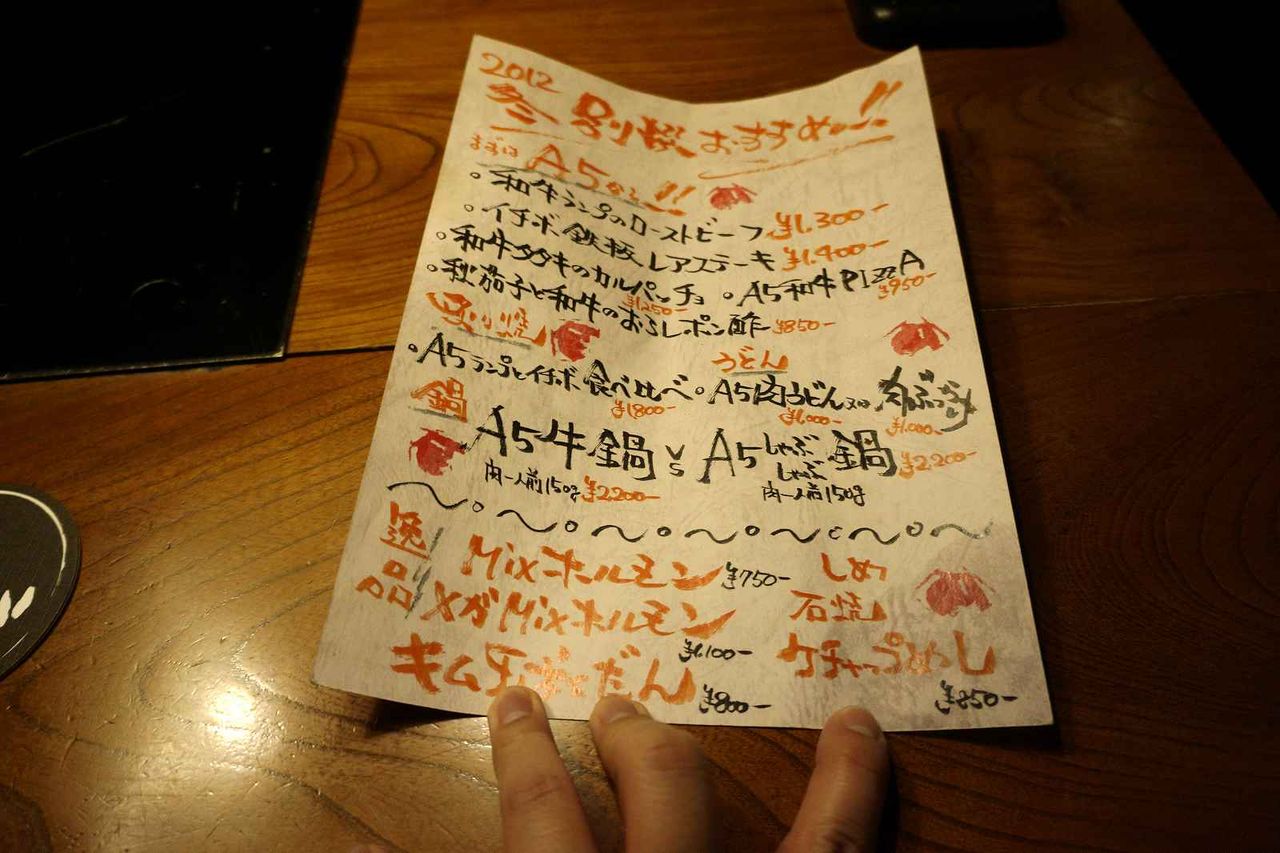 2012
冬 別桜 おすすめ〜!!
まずは A5から!!
。和牛ランプのローストビーフ ¥1.300-
。イチボ 鉄板 レアステーキ ¥1.900-
。和牛タタキのカルパッチョ ¥1250- 。A5和牛PIZZA ¥950-
。秋茄子と和牛のおろしポン酢 ¥850-
炙り焼
。A5ランプとイチボ 食べ比べ ¥1800-
うどん
。A5肉うどん 又は 肉ぶっかけ
¥1,000- ¥1,000-
鍋
A5牛鍋 VS A5しゃぶしゃぶ鍋 ¥2,200-
肉一人前150g ¥2200- 肉一人前150g
逸品
Mixホルモン ¥750-
メガMixホルモン ¥1,100-
¥800-
しめ
石焼
ケチャップめし
¥850-